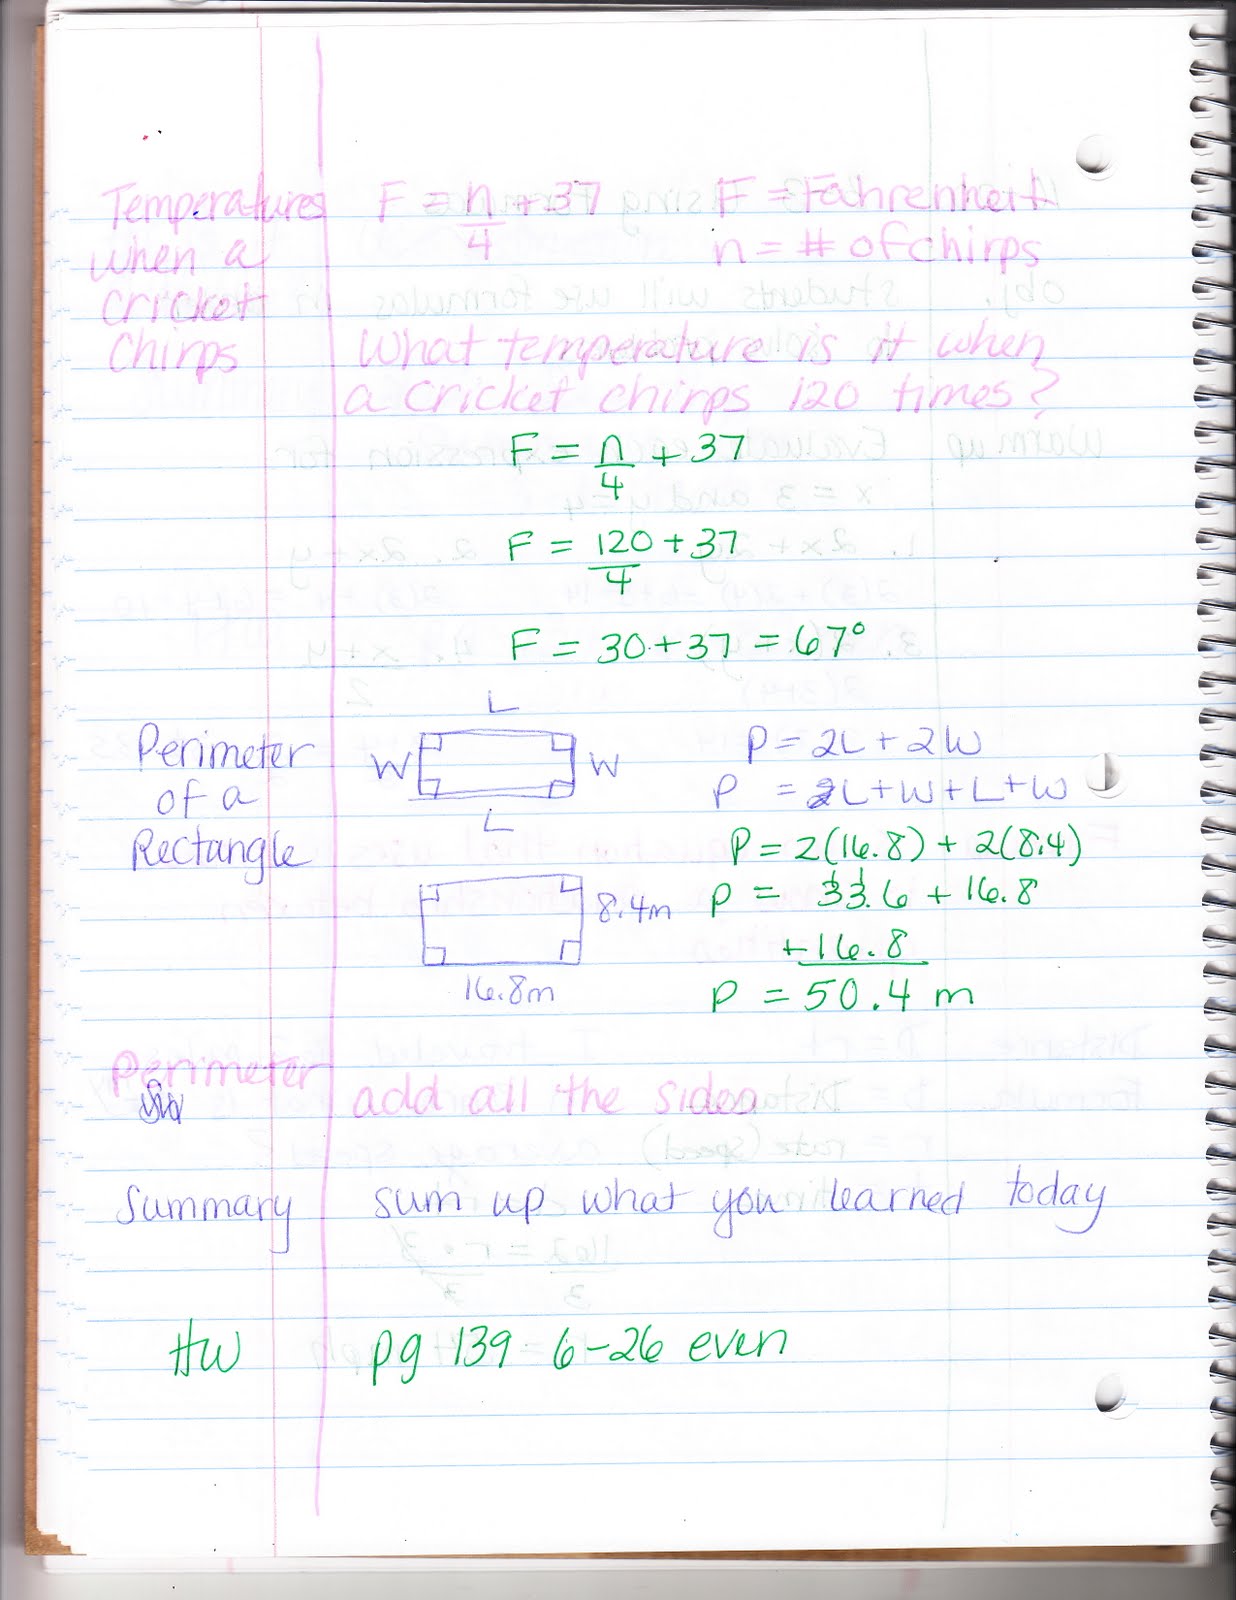 Temperatures when a Cricket Chirps
F = n/4 + 37
F = Fahrenheit
n = # of chirps
What temperature is it when
a cricket chirps 120 times?
F = n/4 + 37
F = 120/4 + 37
F = 30 + 37 = 67°
Perimeter of a Rectangle
L
W
W
L
P = 2L + 2W
P = L + W + L + W
8.4m
16.8m
P = 2(16.8) + 2(8.4)
P = 33.6 + 16.8
+16.8
P = 50.4 m
Perimeter
add all the sides
Summary
sum up what you learned today
HW
pg 139 6-26 even